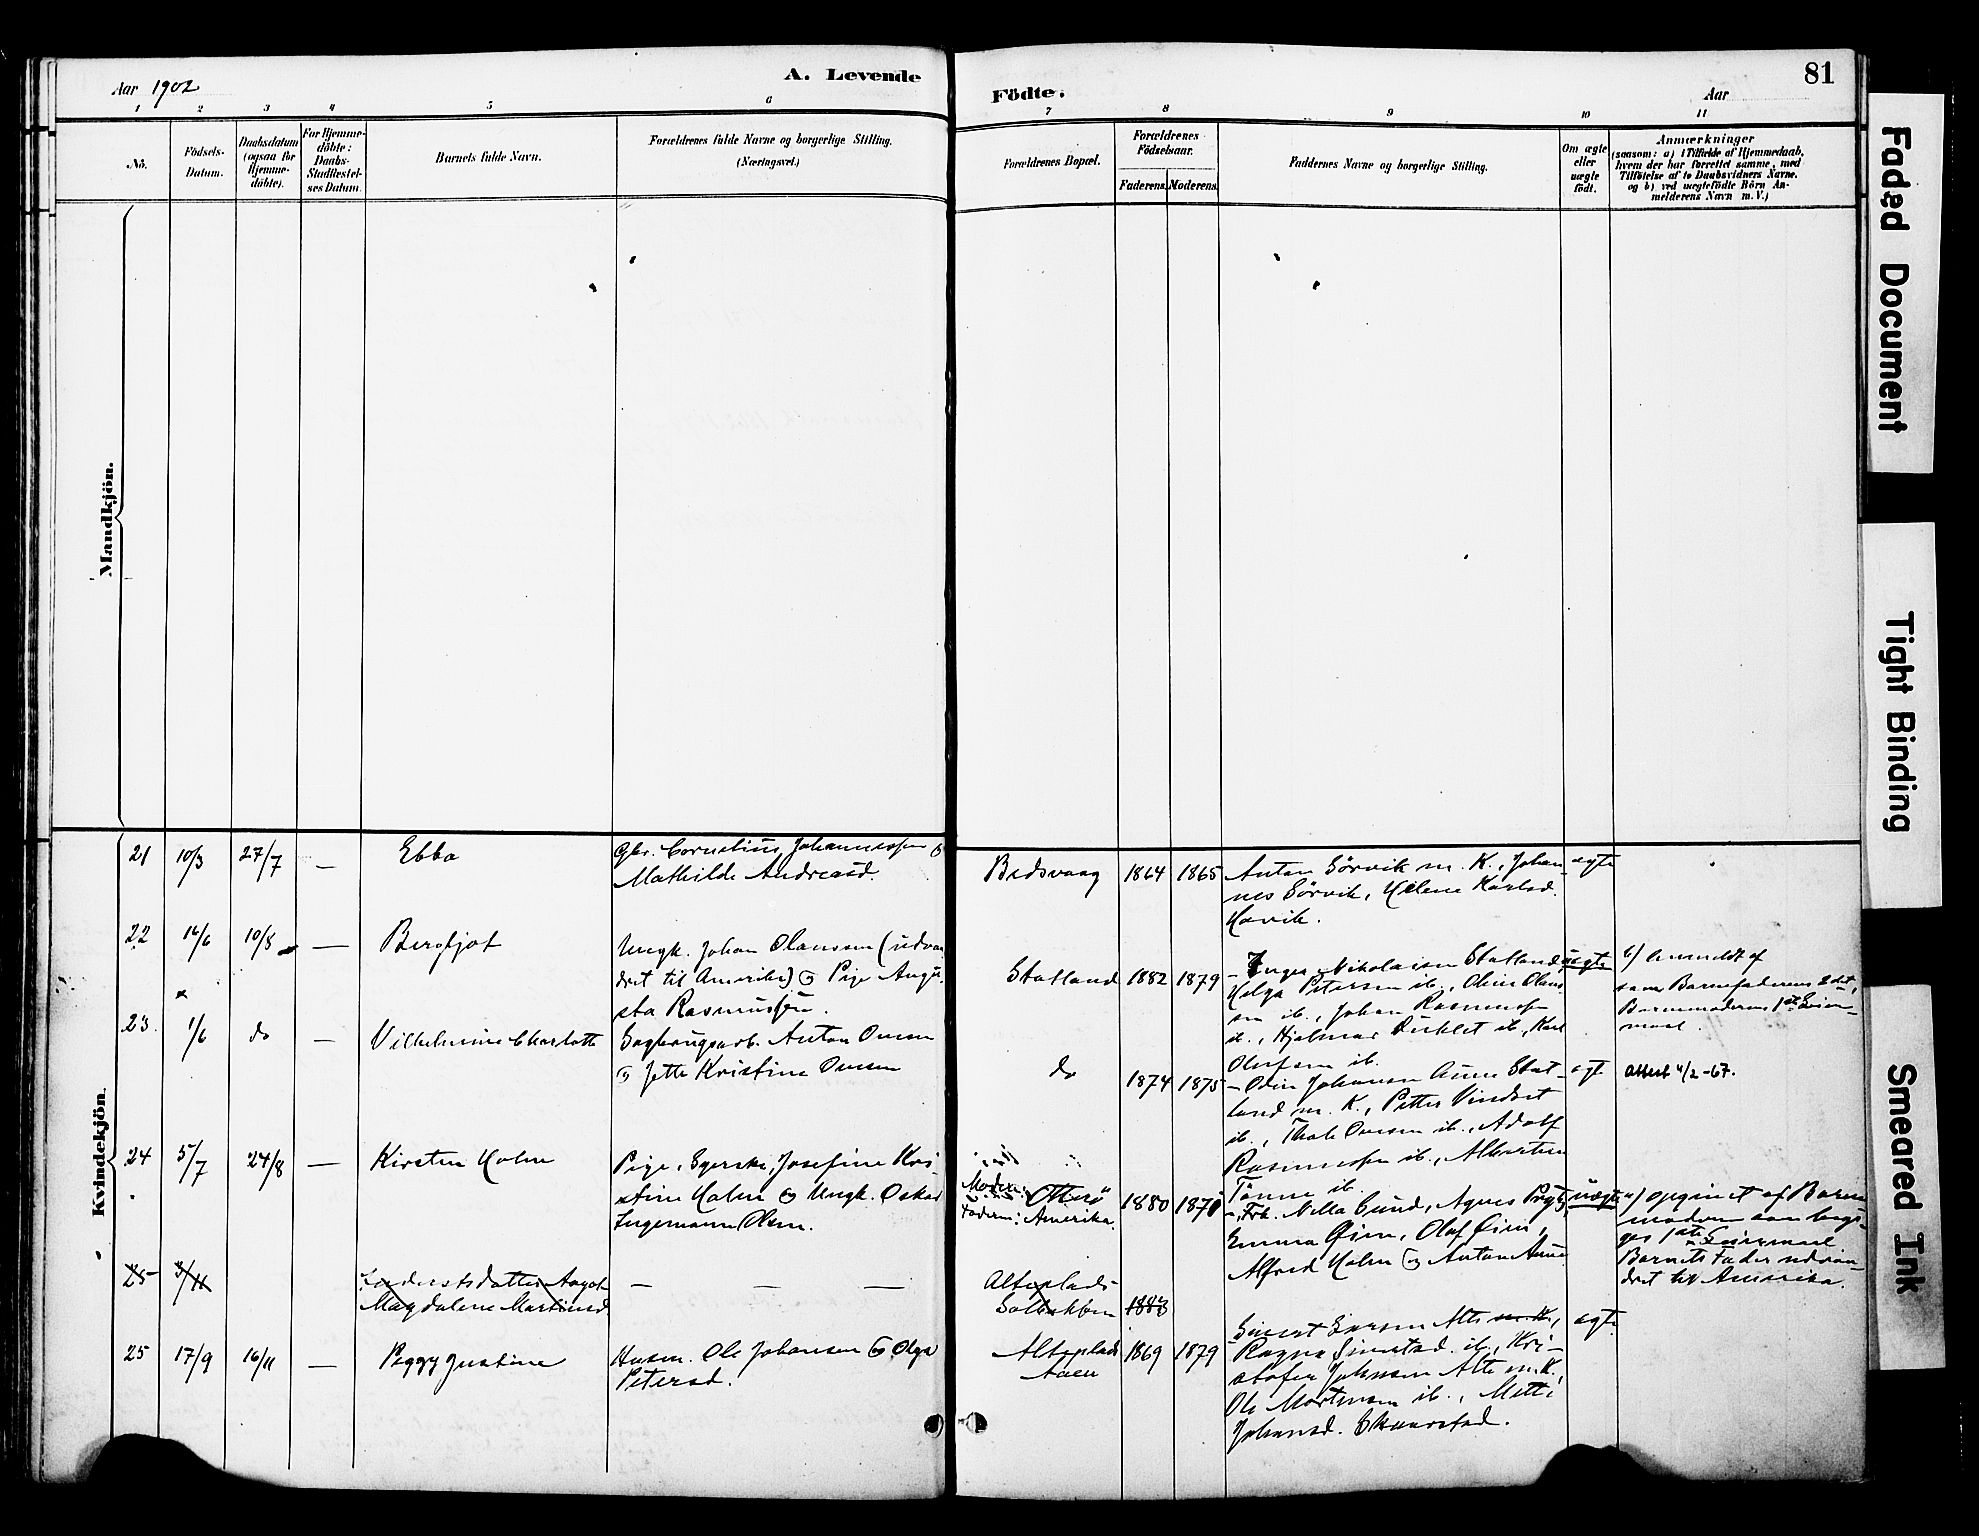 Aar 1902
A. Levende
Födte.
81
Aar
1 2 3 4 5 6 7 8 9 10 11
No.
Födsels-
Datum.
Daabsdatum
(ogsaa for
Hjemme-
döbte).
For Hjemme-
döbte:
Daabs-
Stadfæstel-
ses Datum.
Barnets fulde Navn.
Forældrenes fulde Navne og borgerlige Stilling.
(Næringsvei.)
Forældrenes Bopæl.
Forældrenes
Födselsaar.
Faderens. Moderens.
Faddernes Navne og borgerlige Stilling.
Om ægte
eller
uægte
födt.
Anmærkninger
(saasom: a) i Tilfælde af Hjemmedaab,
hvem der har forrettet samme, med
Tilföielse af to Daabsvidners Navne,
og b) ved uægtefödte Börn An-
melderens Navn m. V.)
Mandkjön.
Kvindekjön.
21 10/3 27/7 — Ebba
Gbr. Cornelius Johannessen og
Mathilde Andreasd.
1864 1865
Anton Sörvik m. K., Johan-
nes Sörvik, Helene Karlsd.
Hovik.
ægte
22 14/6 10/8 — Bergljot
Ungk. Johan Olaussen (udvan-
dret til Amerika) og Pige Augu-
sta Rasmussen.
Statland 1882 1879
Inger Nikolaisen Statland,
Helga Petersen ib., Oline Olaus-
sen ib., Johan Rasmussen
ib., Hjalmar ib., Karl
Olufsen ib.
uægte
b) Anmeldt af
som Barnefaderens 2det,
Barnemoderens 1ste Leier-
maal.
23. 1/6 do — Vilhelmine Charlotte
Sagbrugsarb. Anton Ovesen
og Jette Kristine Ovesen
do 1874 1875
Odin Johansen Aune Stat-
land m. K., Petter
ib., Ovesen ib., Adolf
Rasmussen ib., Albertine
Tönne ib.
ægte
Attest 4/2-67.
24 5/7 24/8 — Kirsten Holm
Pige, Josefine Kri-
stine Holm og Ungk. Oskar
Ingemann Olsen.
Moderen: Otterö
Faderen: Amerika.
1880 1871
Frk. Nella Lund, Agnes
Emma Öien, Olaf Öien,
Alfred Holm og Anton Aune
uægte
a) opgivet af Barne-
moderen
1ste Leiermaal
Barnets Fader udvan-
dret til Amerika.
25 3/11
Magdalene Martinsd
— — —
Alteplads
1883
25 17/9 16/11 — Peggy Justine
Husm. Ole Johansen og Olga
Petersd.
Alteplads
Aaen
1869 1879
Sivert Larsen Alte m. K.,
Ragna ib., Kri-
stofer Johnsen Alte m. K.,
Ole Mortensen ib., Mette
Johansd. Skaarstad.
ægte
Faded Document
Tight Binding
Smeared Ink